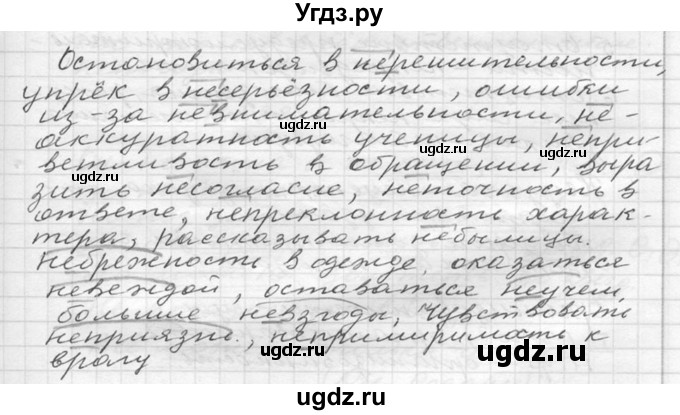 Угдз.ру
Остановиться в нерешительности,
упрёк в несерьёзности, ошибки
из-за невнимательности, не-
аккуратность ученицы, непри-
ветливость в обращении, выра
зить несогласие, неточность в
ответе, непреклонность харак-
тера, рассказывать небылицы.
Небрежность в одежде, оказаться
невеждой, оставаться неучем,
большие невзгоды, чувствовать
неприязнь, непримиримость к
врагу
ugdz.ru
ugdz.ru
ugdz.ru
ugdz.ru
ugdz.ru
ugdz.ru
ugdz.ru
ugdz.ru
ugdz.ru
ugdz.ru